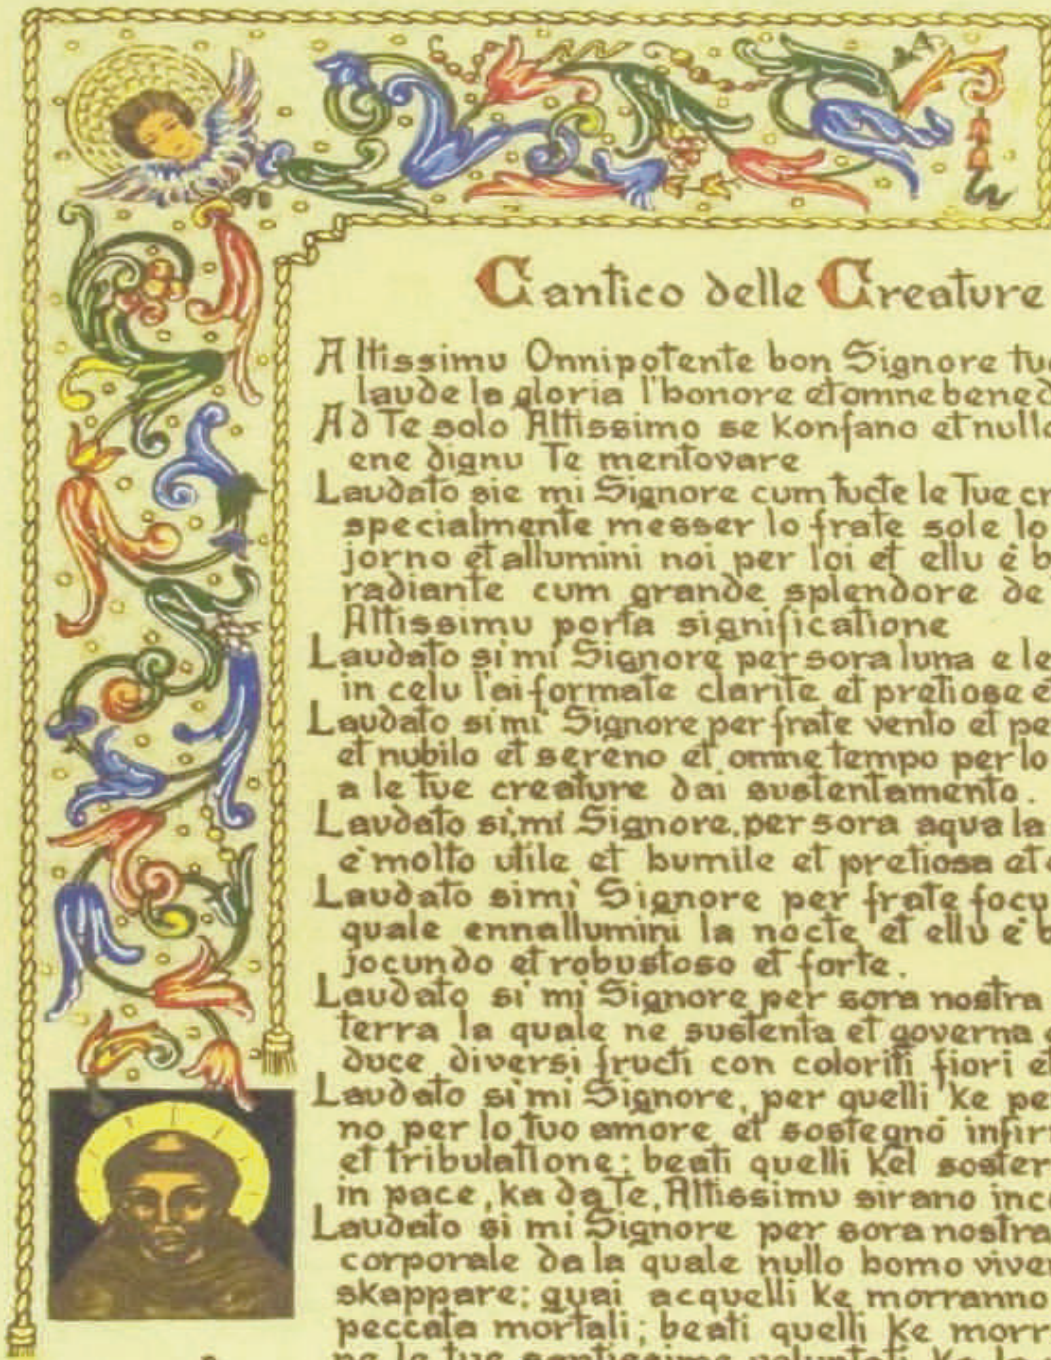 Cantico delle Creature
Altissimu Onnipotente bon Signore tue
laude la gloria l'honore et omne bened
Ad Te solo Altissimo se Konfano et nullo
ene dignu Te mentovare
Laudato sie mi Signore cum tucte le Tue cr
specialmente messer lo frate sole lo
jorno et allumini noi per loi et ellu é b
radiante cum grande splendore de
Altissimu porta significatione
Laudato si mi Signore per sora luna e le
in celu l'ai formate clarite et pretiose e
Laudato si mi Signore per frate vento et pe
et nubilo et sereno et omne tempo per lo
a le tue creature dai sustentamento.
Laudato si, mi Signore, per sora aqua la
e' molto utile et humile et pretiosa et
Laudato si mi Signore per frate focu
quale ennallumini la nocte et ello e' b
jocundo et robustoso et forte.
Laudato si' mi Signore per sora nostra
terra la quale ne sustenta et governa e
duce diversi fructi con coloriti fiori et
Laudato si mi Signore, per quelli ke pe
no per lo tuo amore et sostegno infir
et tribulatione; beati quelli Kel soster
in pace, ka da Te, Altissimu sirano inc
Laudato si mi Signore per sora nostra
corporale da la quale nullo homo viver
skappare; guai acquelli ke morranno
peccata mortali; beati quelli Ke morr
ne le tue santissime voluntati Ka la